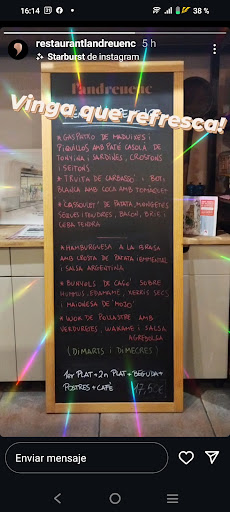 16:14
38 %
restaurantlandreuenc 5 h
Starburst de instagram
l'andreuenc
Vinga que refresca!
* GASPATXO DE MADUIXES I
PIQUILLOS AMB PATÉ CASOLÀ DE
TONYINA I SARDINES, CROSTONS
I SEITONS
* TRUITA DE CARBASSÓ I BOTI
BLANCA AMB COCA AMB TOMÀQUET
DE PATATA, MONGETES
SEQUES I TENDRES, BACON, BRIE I
CEBA TENDRA
* HAMBURGUESA A LA BRASA
AMB CROSTA DE PATATA, EMMENTAL
I SALSA ARGENTINA
* BUNYOLS DE CAÇÓ SOBRE
HUMMUS, EDAMAME, VERRIS SEC
I MAIONESA DE MOJO
* WOK DE POLLASTRE AMB
VERDURETES, WAKAME I SALSA
AGREDOLÇA
(DIMARTS I DIMECRES)
1er PLAT + 2n PLAT + BEGUDA +
POSTRES + CAFÈ 17,50€
Enviar mensaje